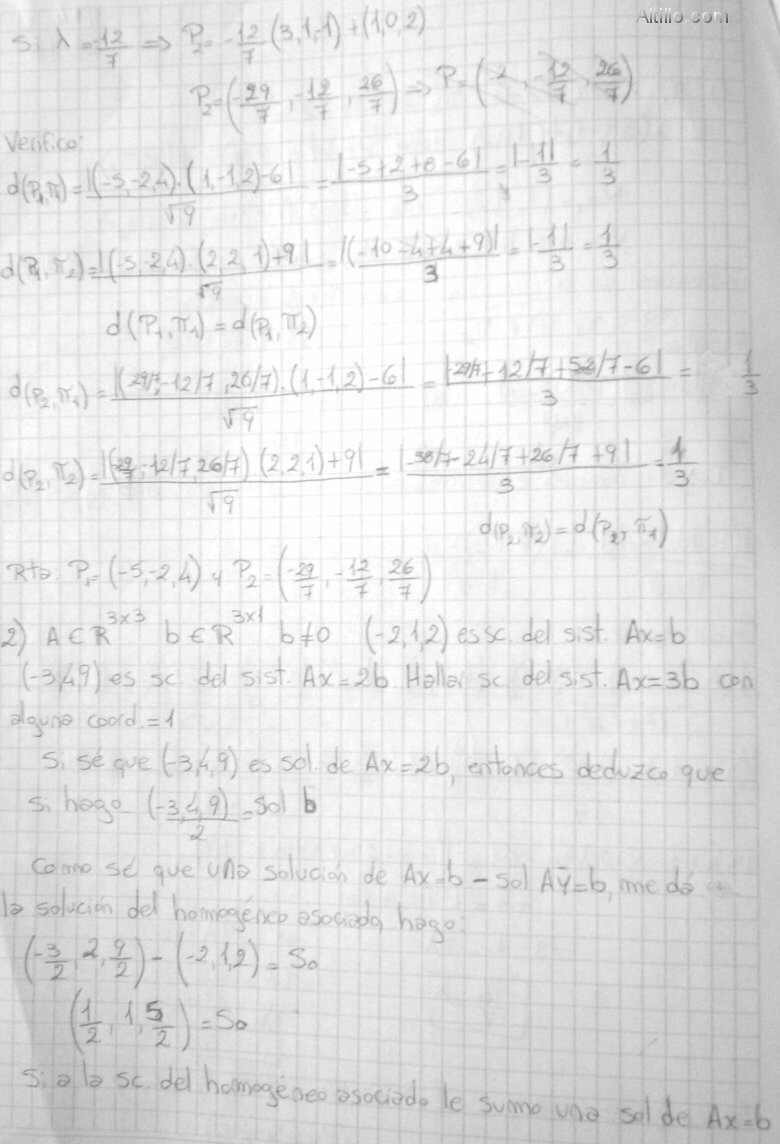 Altillo.com
Si λ = -12/7 ⟹ P₂ = -12/7 (3,1,-1) + (1,0,2)
P₂ = (-29/7, -12/7, 26/7) → P = ( , -12/7, 26/7)
Verifico:
d(P₁,π₁) = |(-5,-2,4).(1,-1,2)-6| / √9 = |-5+2+8-6| / 3 = |-1|/3 = 1/3
d(P₁,π₂) = |(-5,-2,4).(2,2,1)+9| / √9 = |(-10-4+4+9)| / 3 = |-1|/3 = 1/3
d(P₁,π₁) = d(P₁,π₂)
d(P₂,π₁) = |(-29/7,-12/7,26/7).(1,-1,2)-6| / √9 = |-29/7+12/7+52/7-6| / 3 = 1/3
d(P₂,π₂) = |(-29/7,-12/7,26/7)(2,2,1)+9| / √9 = |-58/7-24/7+26/7+9| / 3 = 1/3
d(P₂,π₂) = d(P₂,π₁)
Rta. P₁ = (-5,-2,4) y P₂ = (-29/7, -12/7, 26/7)
2) A ∈ R³ˣ³ b ∈ R³ˣ¹ b≠0 (-2,1,2) es sc. del sist. Ax=b
(-3,4,9) es sc del sist. Ax=2b Hallar sc del sist. Ax=3b con
alguna coord.=1
Si sé que (-3,4,9) es sol. de Ax=2b, entonces deduzco que
si hago (-3,4,9)/2 = sol b
Como sé que una solución de Ax=b - sol Aȳ=b, me da
la solución del homogéneo asociado, hago:
(-3/2, 2, 9/2) - (-2,1,2) = S₀
(1/2, 1, 5/2) = S₀
Si a la sc. del homogéneo asociado le sumo una sol de Ax=b